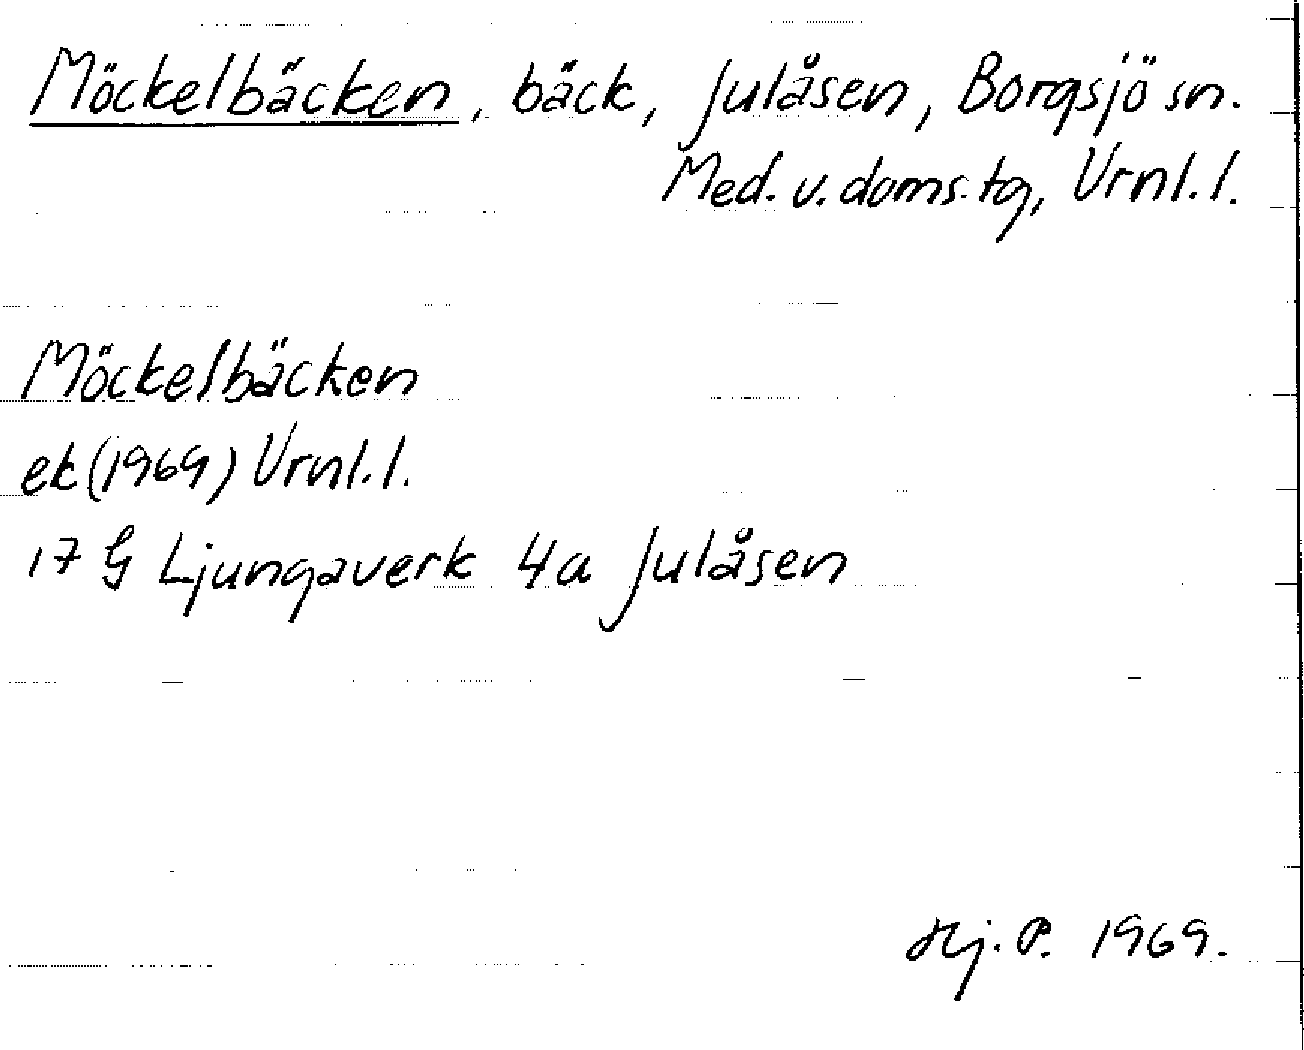 Möckelbäcken, bäck, Julåsen, Borgsjö sn.
Med. v. doms. tg, Vrnl. l.
Möckelbäcken
ek (1969) Vrnl. l.
17 G Ljungaverk 4a Julåsen
Hj. P. 1969.